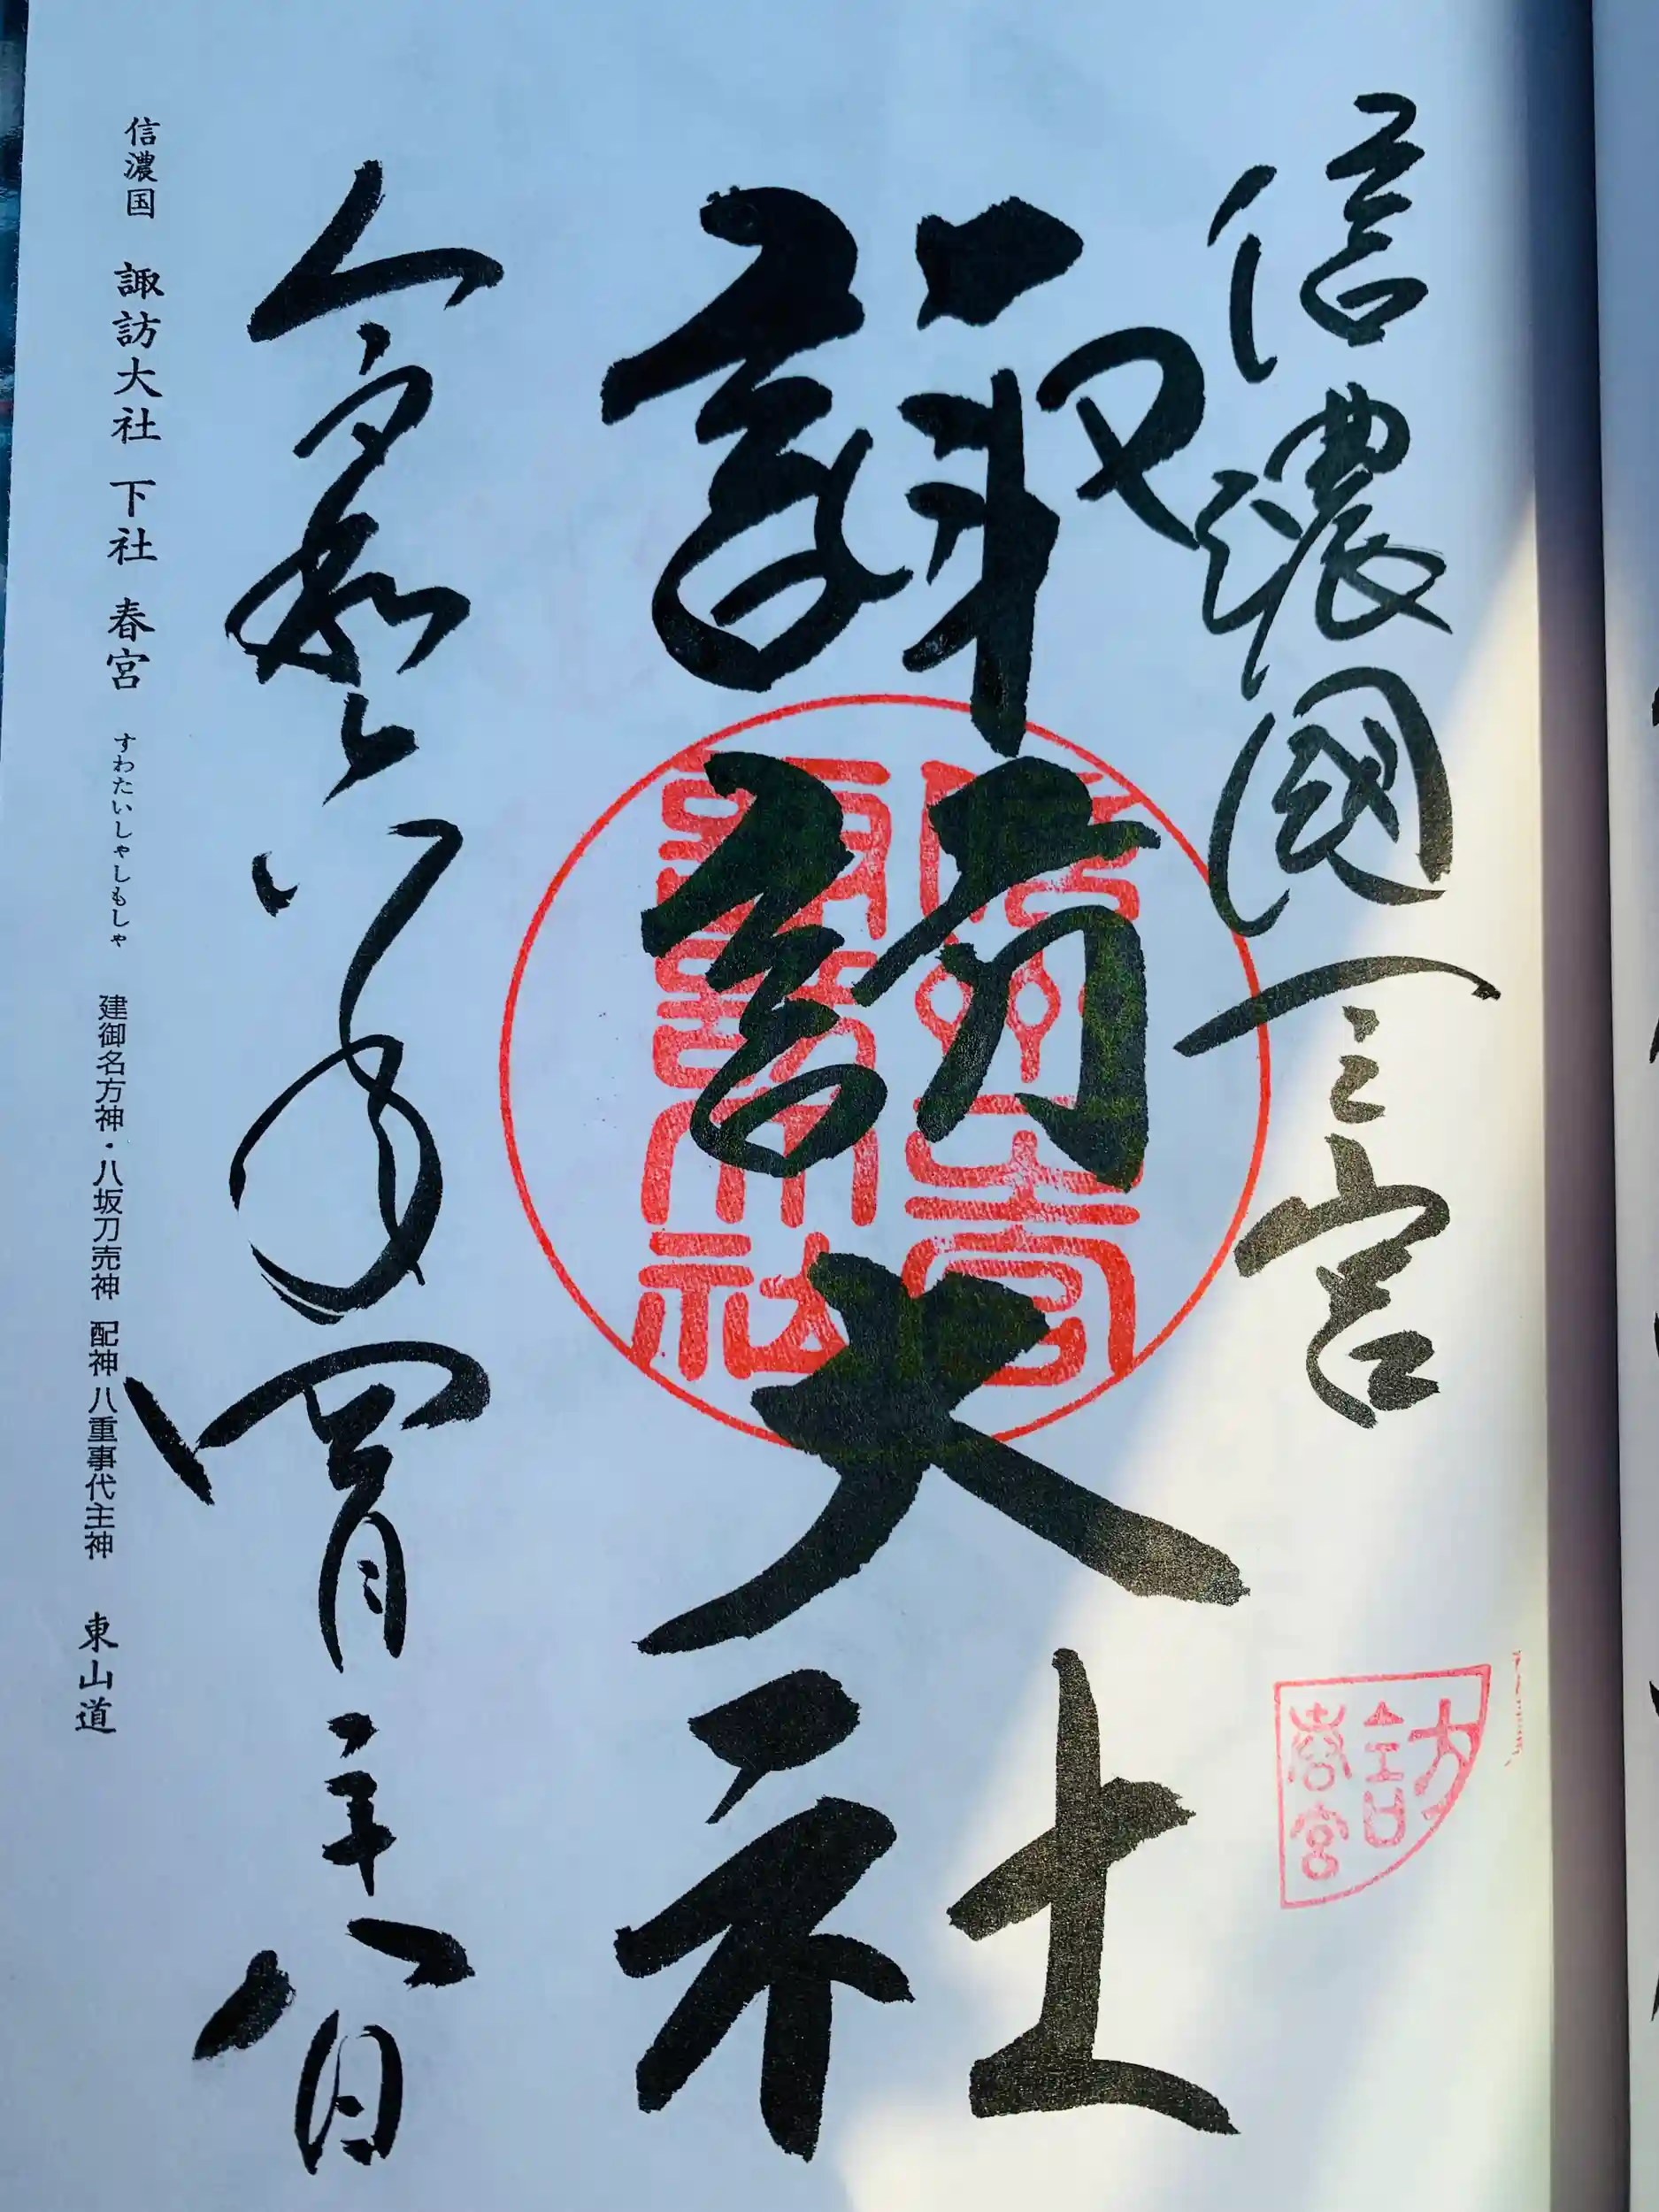 信濃國一之宮
諏訪大社
信州一宮
諏訪大社
訪
春宮
令和六年四月二十八日
信濃国 諏訪大社 下社 春宮 すわたいしゃしもしゃ 建御名方神・八坂刀売神 配神 八重事代主神 東山道